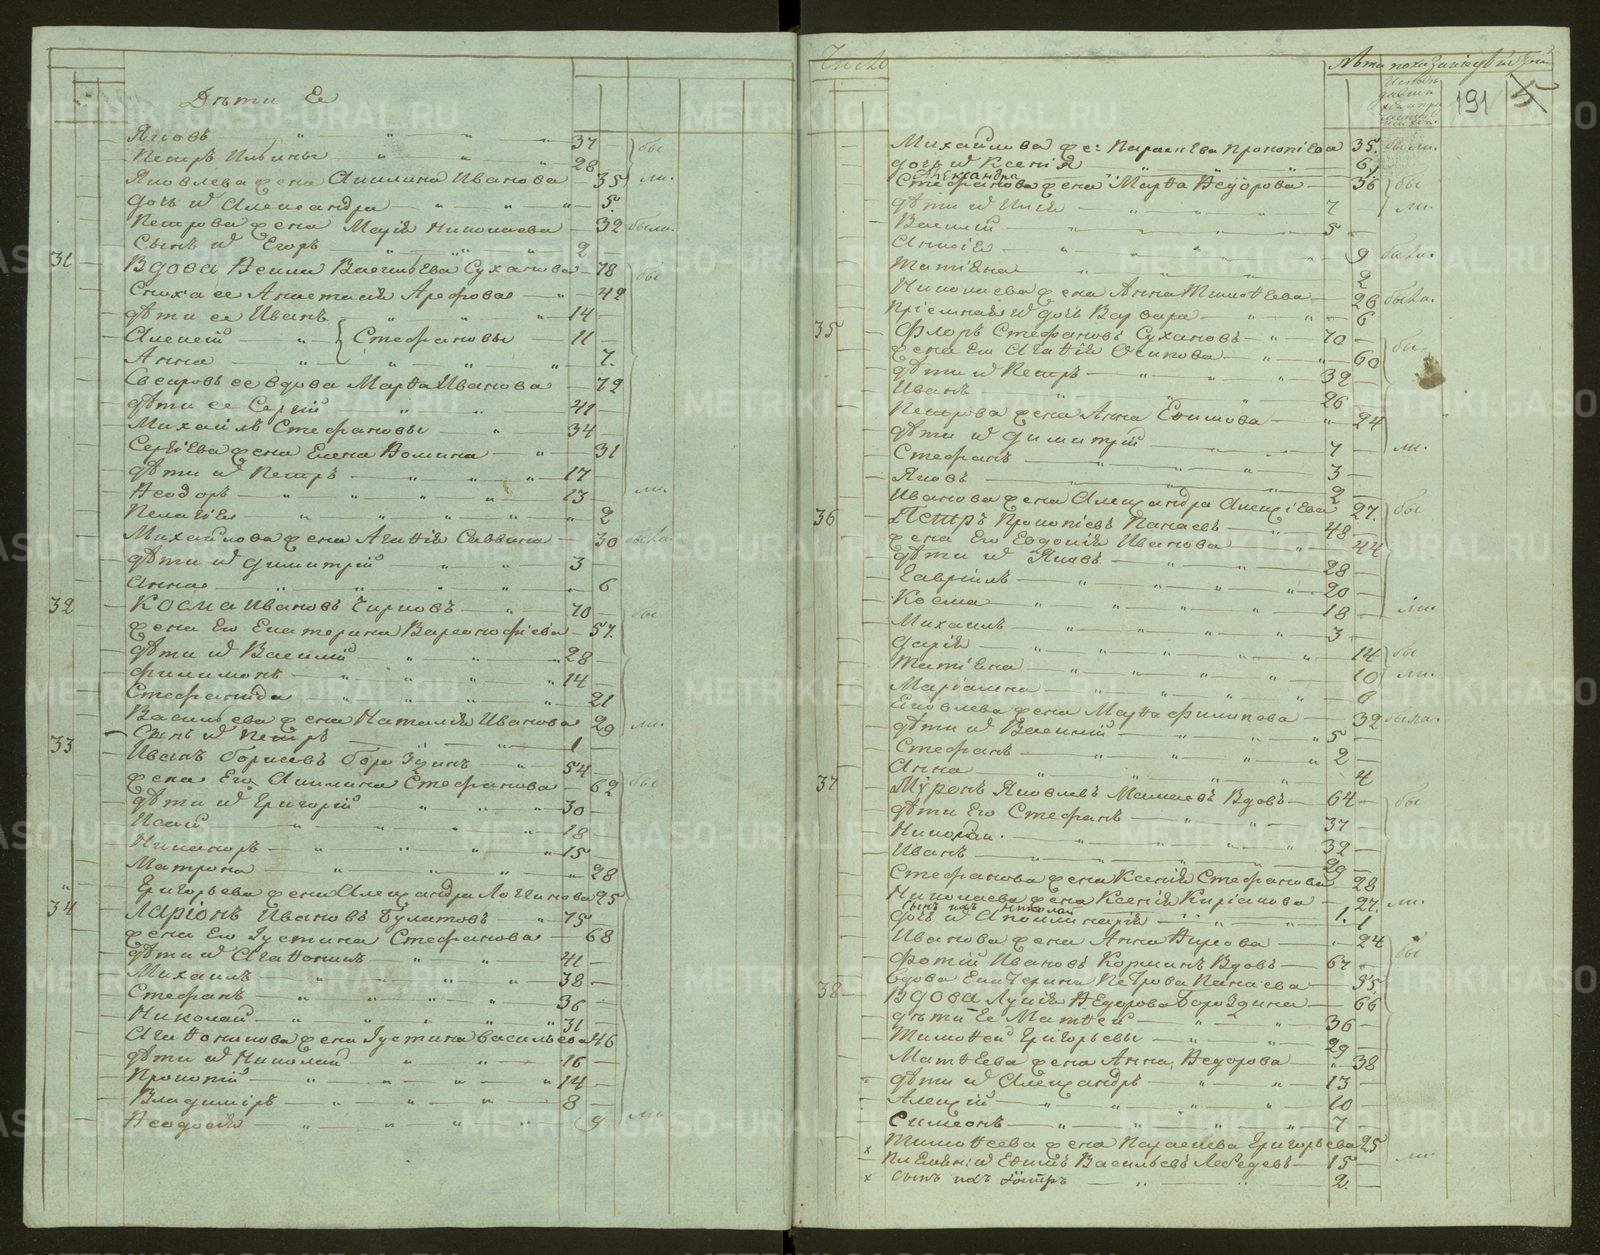 Дѣти Ея
Яковъ 37 бы
Петръ Ильины 28
Яковлева жена Акилина Иванова 35 ли.
дочь их Александра 5.
Петрова жена Марія Николаева 32 была.
Сынъ их Егоръ 2
31 Вдова Ѳекла Васильева Суханова 78 бы
Сноха ее Анастасія Арефова 42
дѣти ее Иванъ 14
Алексій } Стефановы 11
Анна 7.
Свекровь ее вдова Марѳа Иванова 72
дѣти ее Сергій 41
Михаилъ Стефановы 34
Сергіева жена Елена Ѳомина 31
дѣти их Петръ 17
Ѳеодоръ 13 ли.
Пелагія 2
Михайлова жена Агаѳія Саввина 30 была
дѣти их Димитрій 3
Анна 6
32 Косма Ивановъ Чирковъ 70 бы
жена Его Екатерина Варѳоломеева 57.
дѣти их Василій 28
Филимонъ 14
Стефанида 21
Васильева жена Наталія Иванова 29 ли.
Сынъ их Петръ 1
33 Иванъ Борисовъ Бороздинъ 54
жена Его Акилина Стефанова 62 бы
дѣти их Григорій 30
Исаій 18
Никаноръ 15
Матрона 28
Григорьева жена Александра Логинова 25
34 Ларіонъ Ивановъ Булатовъ 75
жена Его Іустина Стефанова 68
дѣти их Агаѳоникъ 41
Михаилъ 38
Стефанъ 36
Николай 31
Агаѳоникова жена Іустина Васильева 46
дѣти их Николай 16
Прокопій 14
Владиміръ 8
Ѳеодосія 9 ли
Число
Лѣта
191 5
Михайлова же: Параскева Прокопіева 35. были.
дочь их Ксенія 6.
Александра
Стефанова жена Марѳа Ѳедорова 36 бы
дѣти их Илія 7 ли.
Василій 5
Анисія 9 была.
Татіана 2
Николаева жена Анна Тимоѳеева 26 была.
Пріемная их дочь Варвара 6
35 Флоръ Стефановъ Сухановъ 70
жена Его Агаѳія Осипова 60 бы
дѣти их Петръ 32
Иванъ 26
Петрова жена Анна Еѳимова 24
дѣти их Димитрій 7 ли.
Стефанъ 3
Яковъ 2
Иванова жена Александра Алексіева 27. бы
36 Петръ Прокопіевъ Панаевъ 48
жена Его Евдокія Иванова 44
дѣти их Яковъ 28
Гавріилъ 20
Косма 18 ли.
Михаилъ 3
Дарія 14 бы
Татіана 10 ли.
Маріанна 6
Яковлева жена Марѳа Филипова 32 была.
дѣти их Василій 5
Стефанъ 2
Анна 4
37 Мѵронъ Яковлевъ Вдовъ 64 бы
дѣти Его Стефанъ 37
Николай. 32
Иванъ 29
Стефанова жена Ксенія Стефанова 28
Николаева жена Ксенія Киріанова 27. ли.
сынъ ихъ Николай 1.
дочь их Аполлинарія 1
Иванова жена Анна Киръова 24
Фотій Ивановъ Корминъ Вдовъ 67 бы
вдова Екатерина Петрова Панаева 35
38 Вдова Лукія Ѳедорова Бороздина 66
дѣти Ее Матѳей 36
Тимоѳей Григорьевы 29
Матѳеева жена Анна Ѳедорова 38
дѣти их Александръ 13
Алексій 10
Симеонъ 7
х Тимоѳеева жена Параскева Григорьева 25
Племян: их Еѳимъ Васильевъ Лебедевъ 15 ли.
х сынъ ихъ Петръ 2.